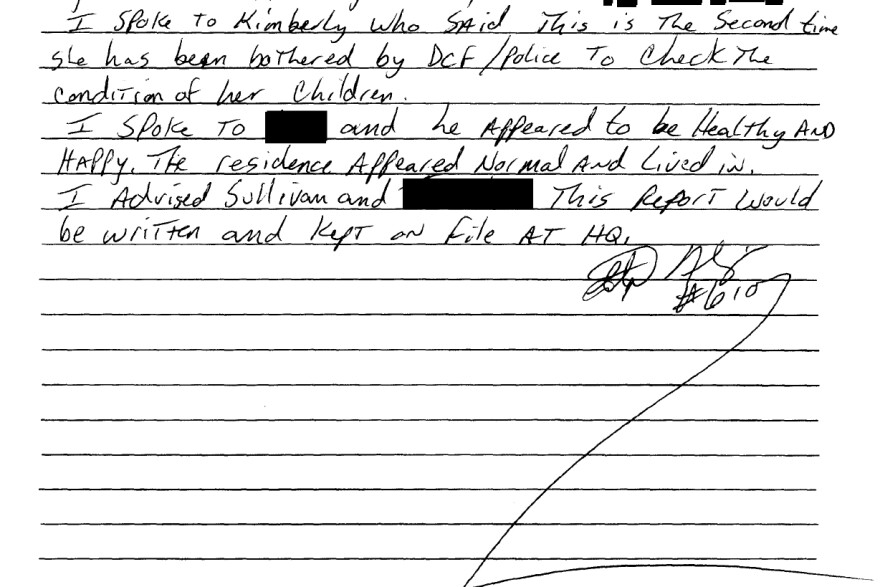 I Spoke To Kimberly who said This is The Second time
she has been bothered by DCF/Police To Check The
condition of her Children.
I Spoke To and he Appeared to be Healthy AND
HAPPy. The residence Appeared Normal And Lived in.
I Advised Sullivan and This Report Would
be written and Kept on File AT HQ.
#610